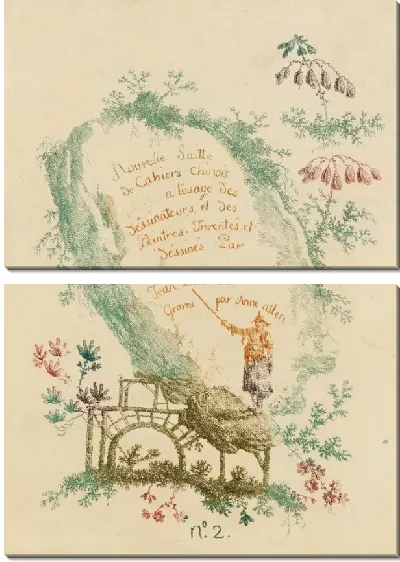 Nouvelle Suitte
De Cahiers Chinois
a l'usage des
Dessinateurs, et des
Peintres. Inventés, et
Déssinés Par
Jean
Gravés par Anne allen
n.º 2.